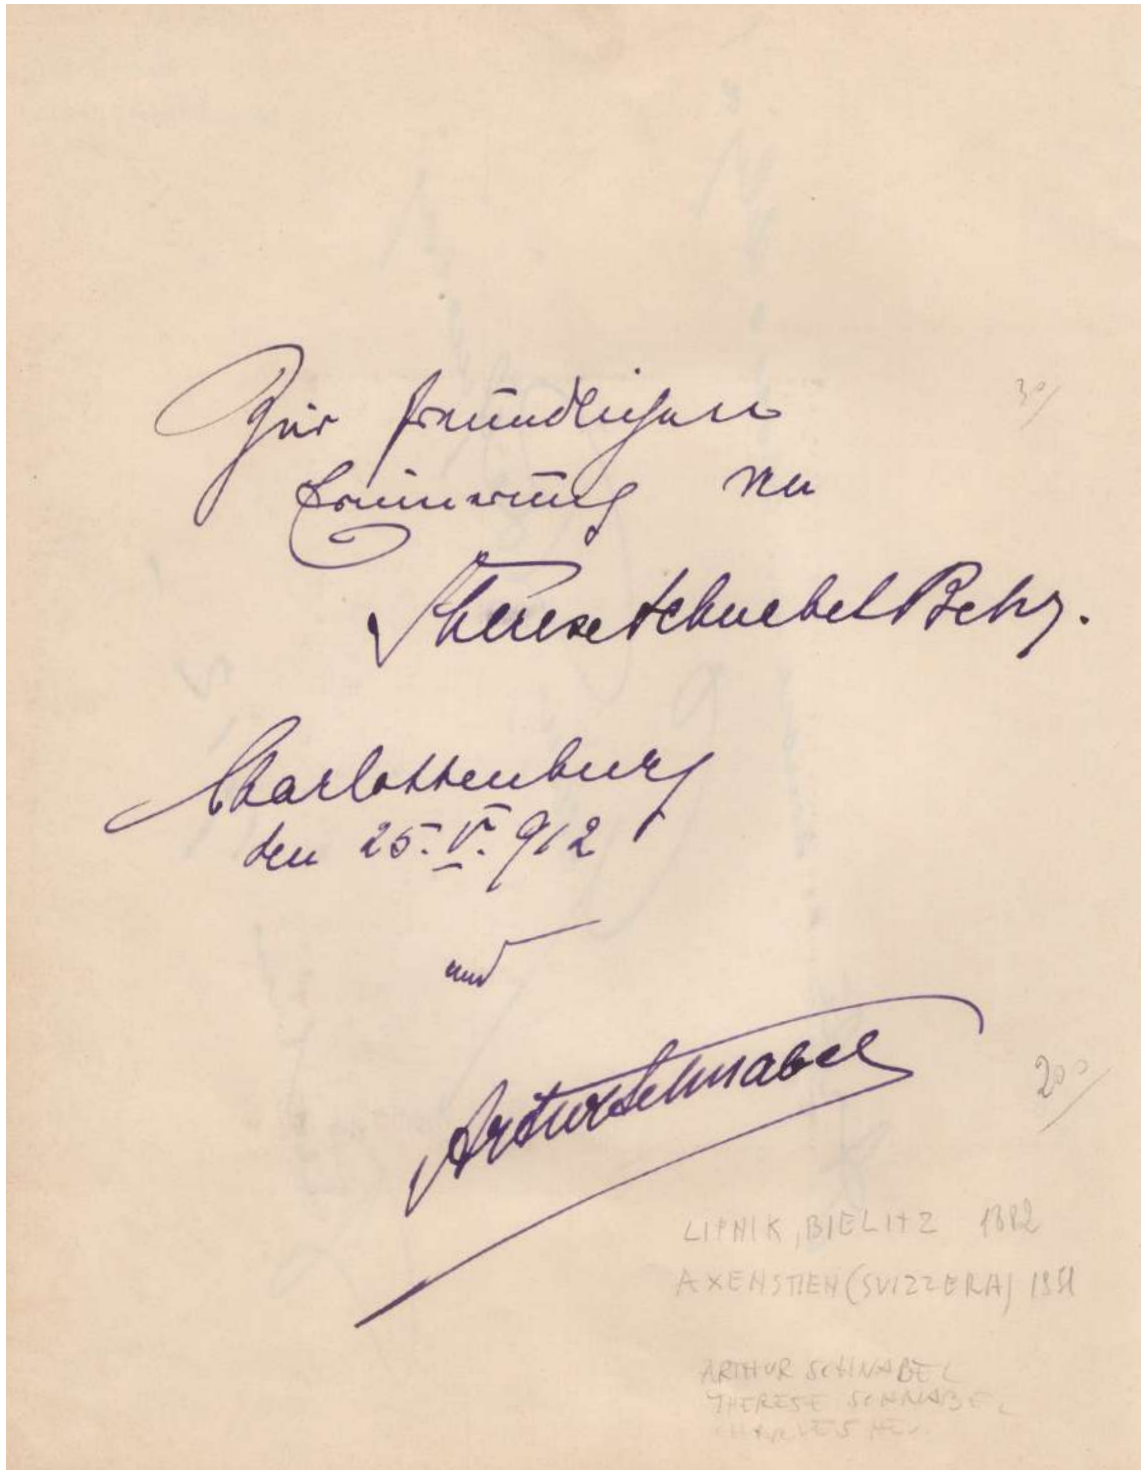 Zur freundlichen
Erinnerung an
Therese Schnabel Behr.
Charlottenburg
den 25. V. 912
und
Artur Schnabel
200/
LIPNIK, BIELITZ 1882
AXENSTIEN (SVIZZERA) 1951
ARTHUR SCHNABEL
THERESE SCHNABEL